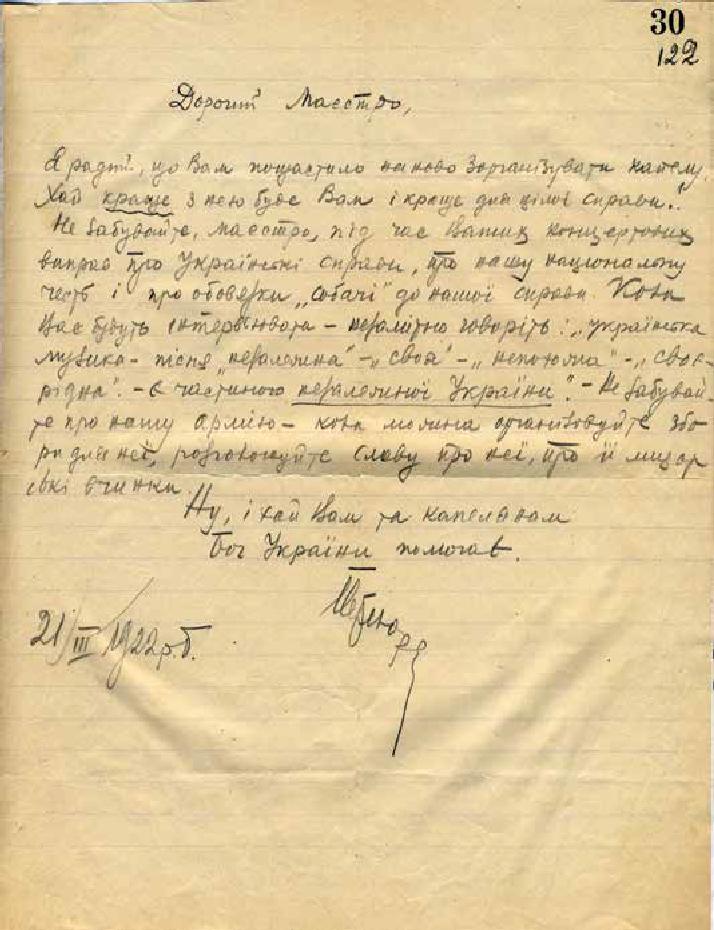 30
122
Дорогий Маєстро,
Я радий, що Вам пощастило наново зорганізувати капелу.
Хай краще з нею буде Вам і краще для цілої справи.
Не забувайте, маєстро, під час Ваших концертових
виправ про Українські справи, про нашу національну
честь і про обовязки „собачі" до нашої справи. Коли
Вас будуть інтервювати – незмінно говоріть: „українська
музика – пісня „незалежна" – „своя" – – „своє-
рідна". – є частиною незалежної України". – Не забувай-
те про нашу армію – коли можна організовуйте збо
ри для неї, розголошуйте славу про неї, про її лицар
ські вчинки.
Ну, і хай Вам та капелянам
Бог України помогає.
21/III 1922 р.б.